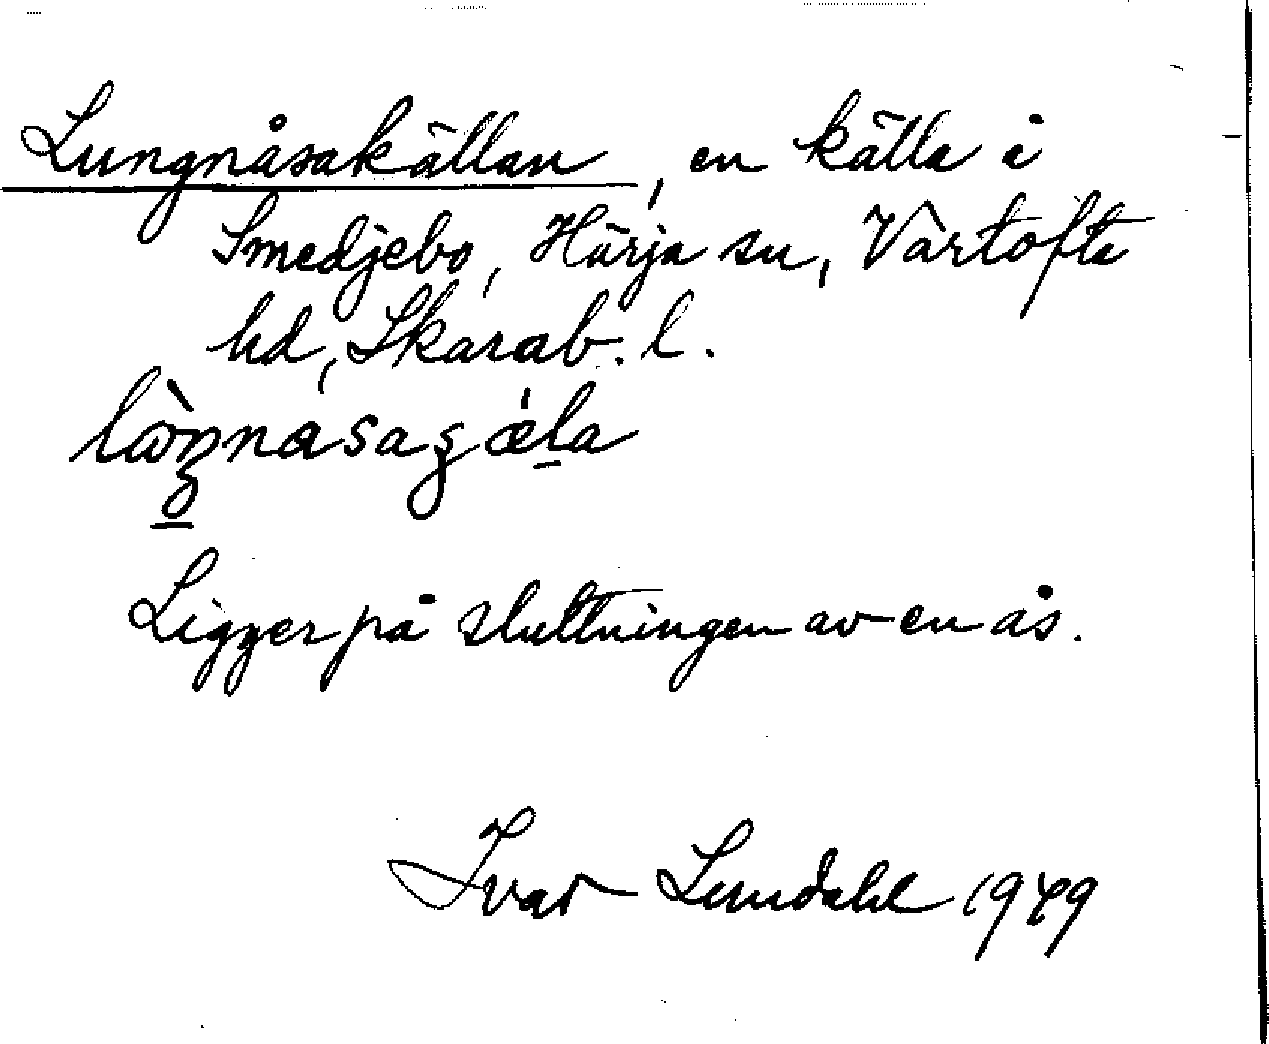 Lungnåsakällan, en källa i
Smedjebo, Härja sn, Vartofta
hd, Skarab. l.
Ligger på sluttningen av en ås.
Ivar Lundahl 1949